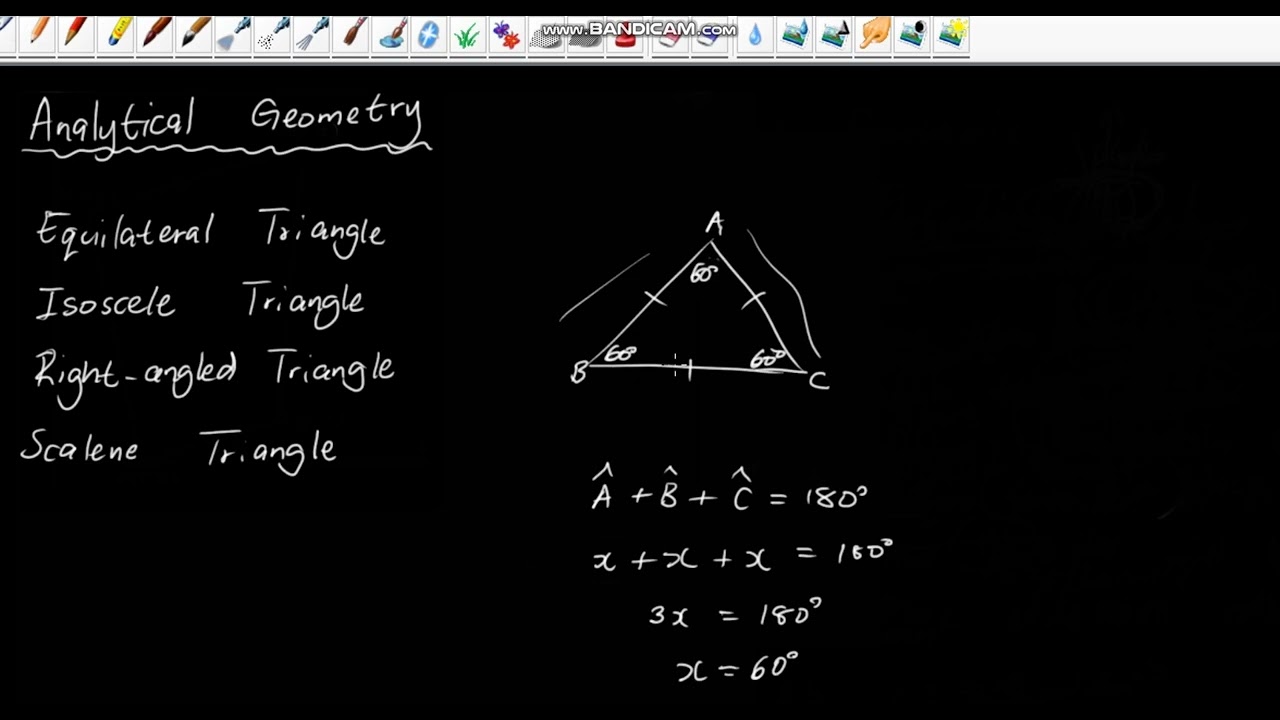 www.BANDICAM.com
Analytical Geometry
Equilateral Triangle
Isoscele Triangle
Right-angled Triangle
Scalene Triangle
A
60°
B 60° 60° C
Â + B̂ + Ĉ = 180°
x + x + x = 180°
3x = 180°
x = 60°